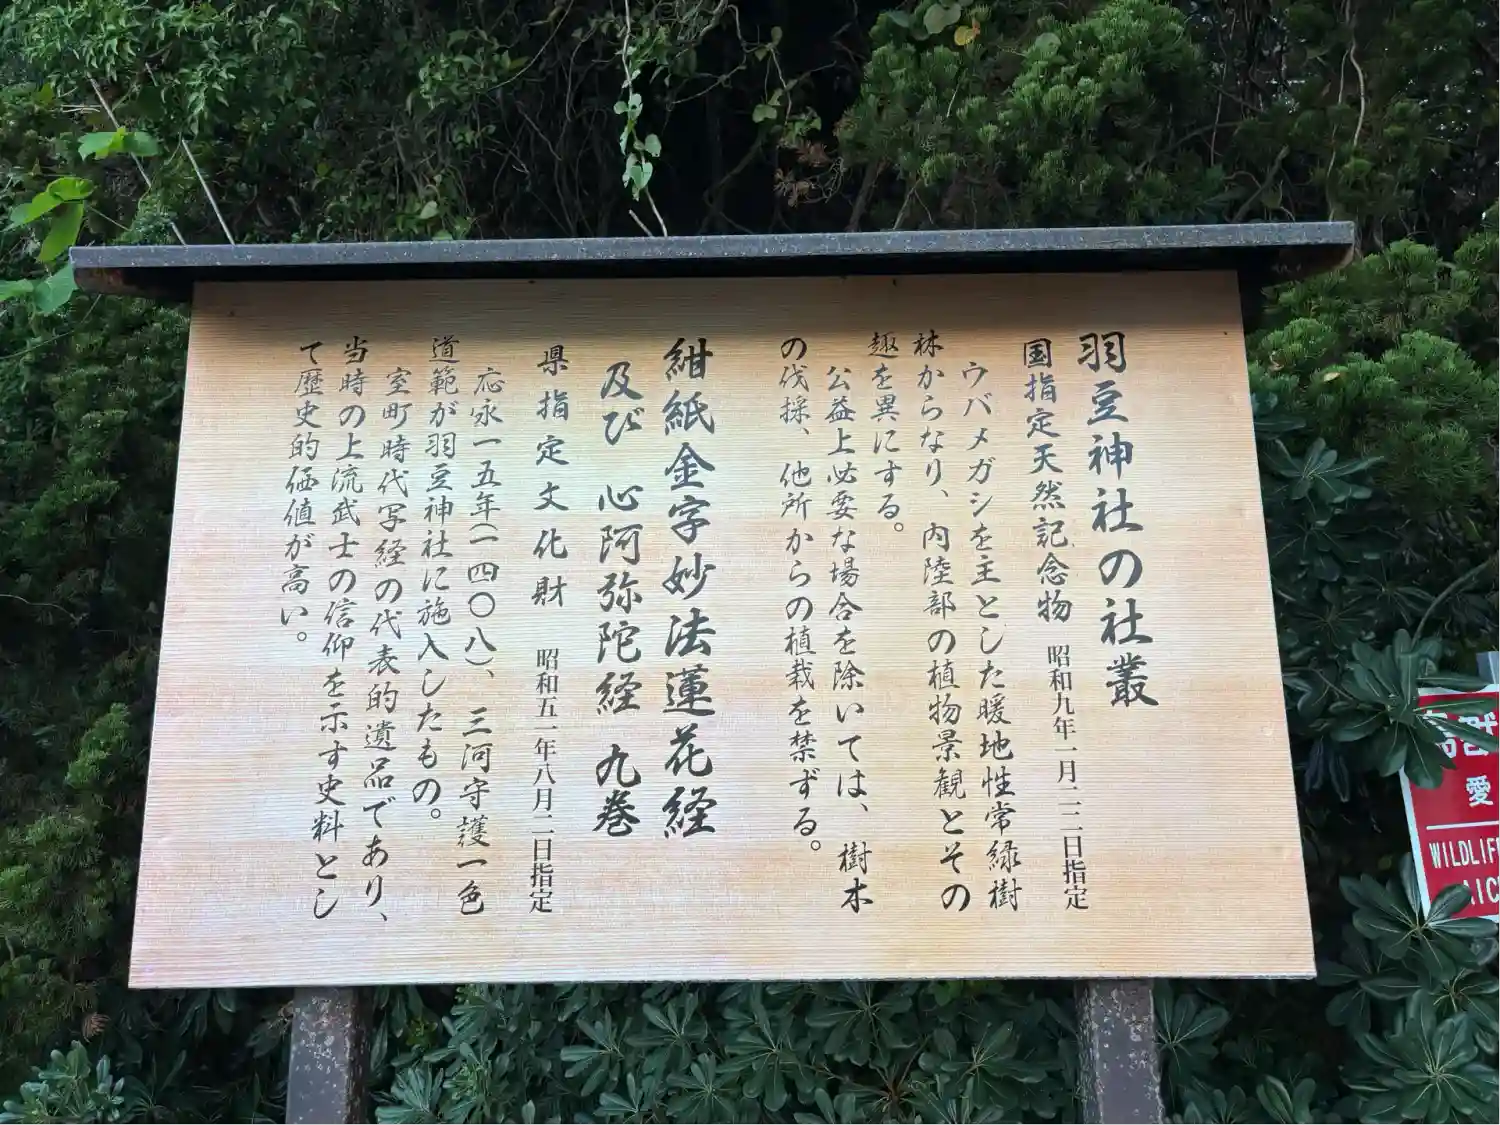 羽豆神社の社叢
国指定天然記念物　昭和九年一月二二日指定
ウバメガシを主とした暖地性常緑樹
林からなり、内陸部の植物景観とその
趣を異にする。
公益上必要な場合を除いては、樹木
の伐採、他所からの植栽を禁ずる。
紺紙金字妙法蓮花経
及び　心阿弥陀経　九巻
県指定文化財　昭和五一年八月二日指定
応永一五年(一四〇八)、三河守護一色
道範が羽豆神社に施入したもの。
室町時代写経の代表的遺品であり、
当時の上流武士の信仰を示す史料とし
て歴史的価値が高い。
愛
WILDLIF
AIC